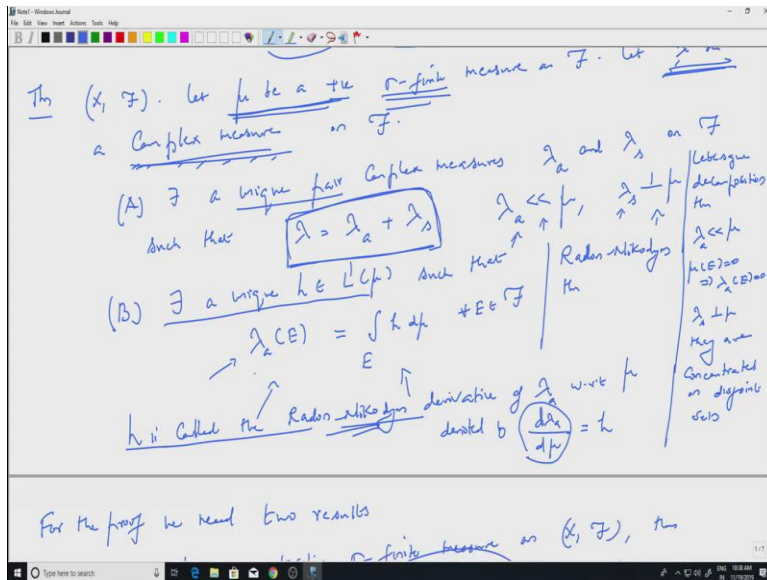 Note1 - Windows Journal
File Edit View Insert Actions Tools Help
Thm (X, F). Let μ be a +ve σ-finite measure on F. Let λ be
a Complex measure on F.
(A) ∃ a unique pair Complex measures λ_a and λ_s on F
such that λ = λ_a + λ_s λ_a << μ, λ_s ⊥ μ
(B) ∃ a unique h ∈ L¹(μ) such that
λ_a(E) = ∫_E h dμ ∀ E ∈ F
h is called the Radon-Nikodym derivative of λ_a w.r.t μ
denoted b dλ_a/dμ = h
Radon-Nikodym
thm
Lebesgue
decomposition
thm
λ_a << μ
μ(E)=0
=> λ_a(E)=0
λ_s ⊥ μ
they are
concentrated
on disjoint
sets
For the proof we need two results
σ-finite measure on (X, F), then
1/7
Type here to search
ENG 10:30 AM
IN 11/19/2019